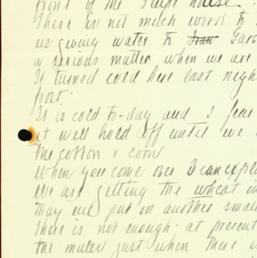 front of the
There is not much words to
us giving water to
a serious matter when we are
It turned cold here last nigh
It is cold to-day and I fear
it will hold off until we
the cotton & corn
When you come over I can expla
We are getting the wheat in
may we put in another small
There is not enough, at present
the mules just when there